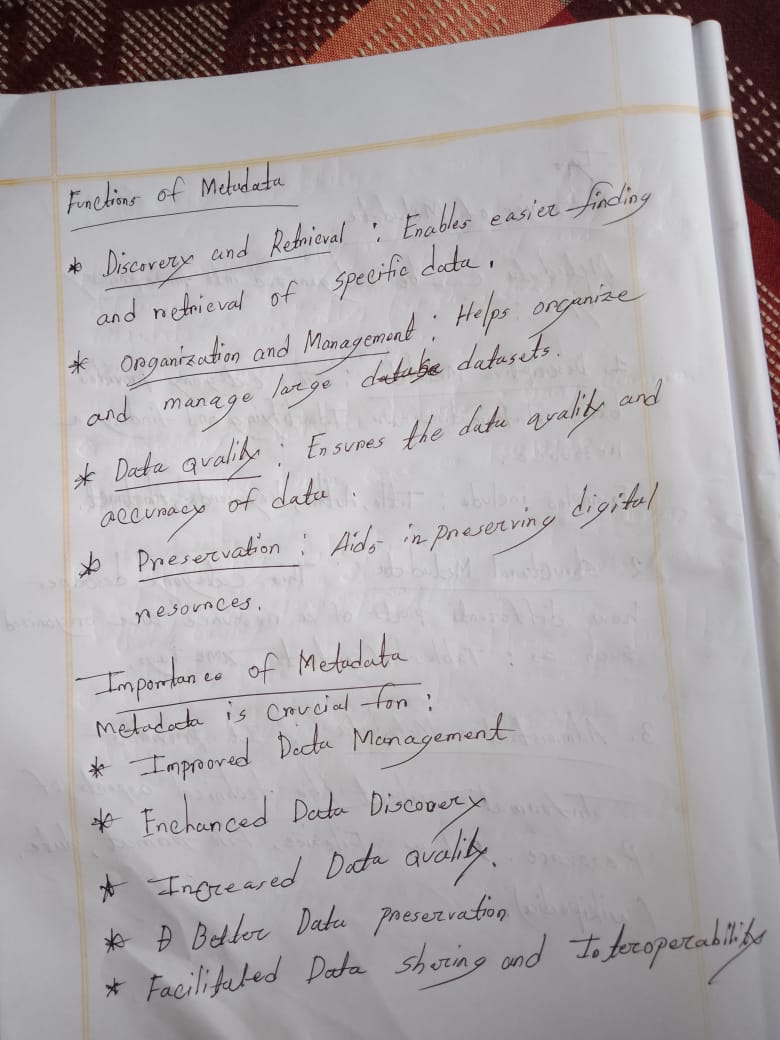 Functions of Metadata
* Discovery and Retrieval : Enables easier finding
and retrieval of specific data.
* Organization and Management : Helps organize
and manage large datasets.
* Data quality : Ensures the data quality and
accuracy of data.
* Preservation : Aids in preserving digital
resources.
Importance of Metadata
Metadata is crucial for :
* Improved Data Management
* Enchanced Data Discovery
* Increased Data quality.
* Better Data preservation
* Facilitated Data sharing and Interoperability